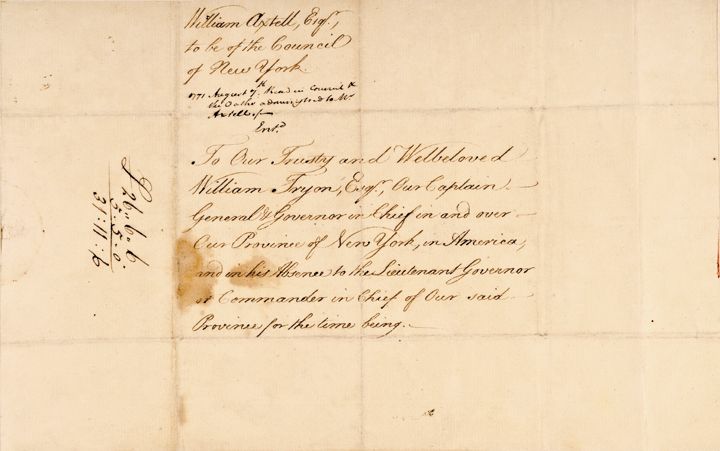 William Axtell, Esqr.,
to be of the Council
of New York.
1771 August 7th. Read in Council &
the Oaths administred to Mr
Axtell
Entd.
To Our Trusty and Welbeloved
William Tryon, Esqr., Our Captain
General & Governor in Chief in and over
Our Province of New York, in America,
and in his Absence to the Lieutenant Governor
or Commander in Chief of Our said
Province for the time being.
£
26..6..6.
5..5..0
31:11:6